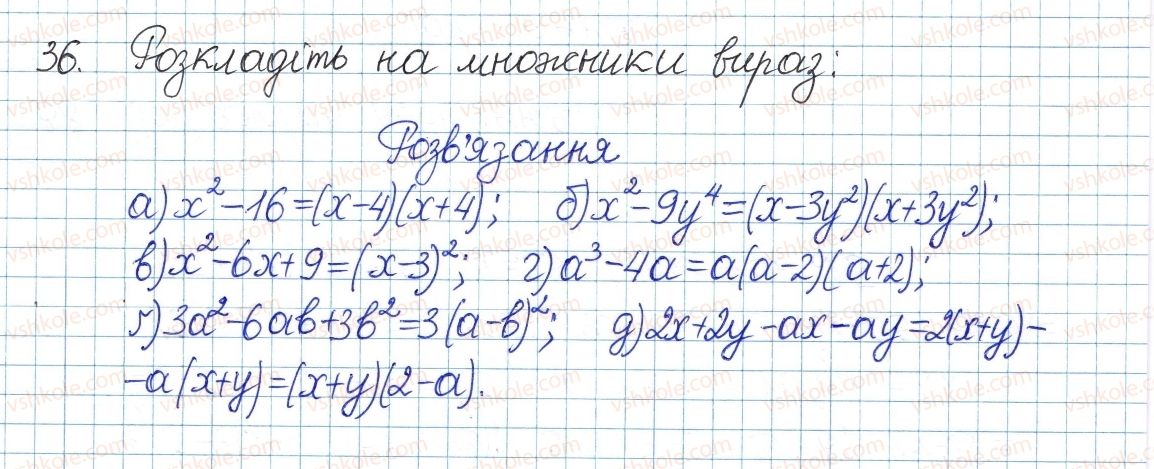 36. Розкладіть на множники вираз:
Розв'язання
а) x² - 16 = (x - 4)(x + 4); б) x² - 9y⁴ = (x - 3y²)(x + 3y²);
в) x² - 6x + 9 = (x - 3)²; г) a³ - 4a = a(a - 2)(a + 2);
ґ) 3a² - 6ab + 3b² = 3(a - b)²; д) 2x + 2y - ax - ay = 2(x + y) -
- a(x + y) = (x + y)(2 - a).